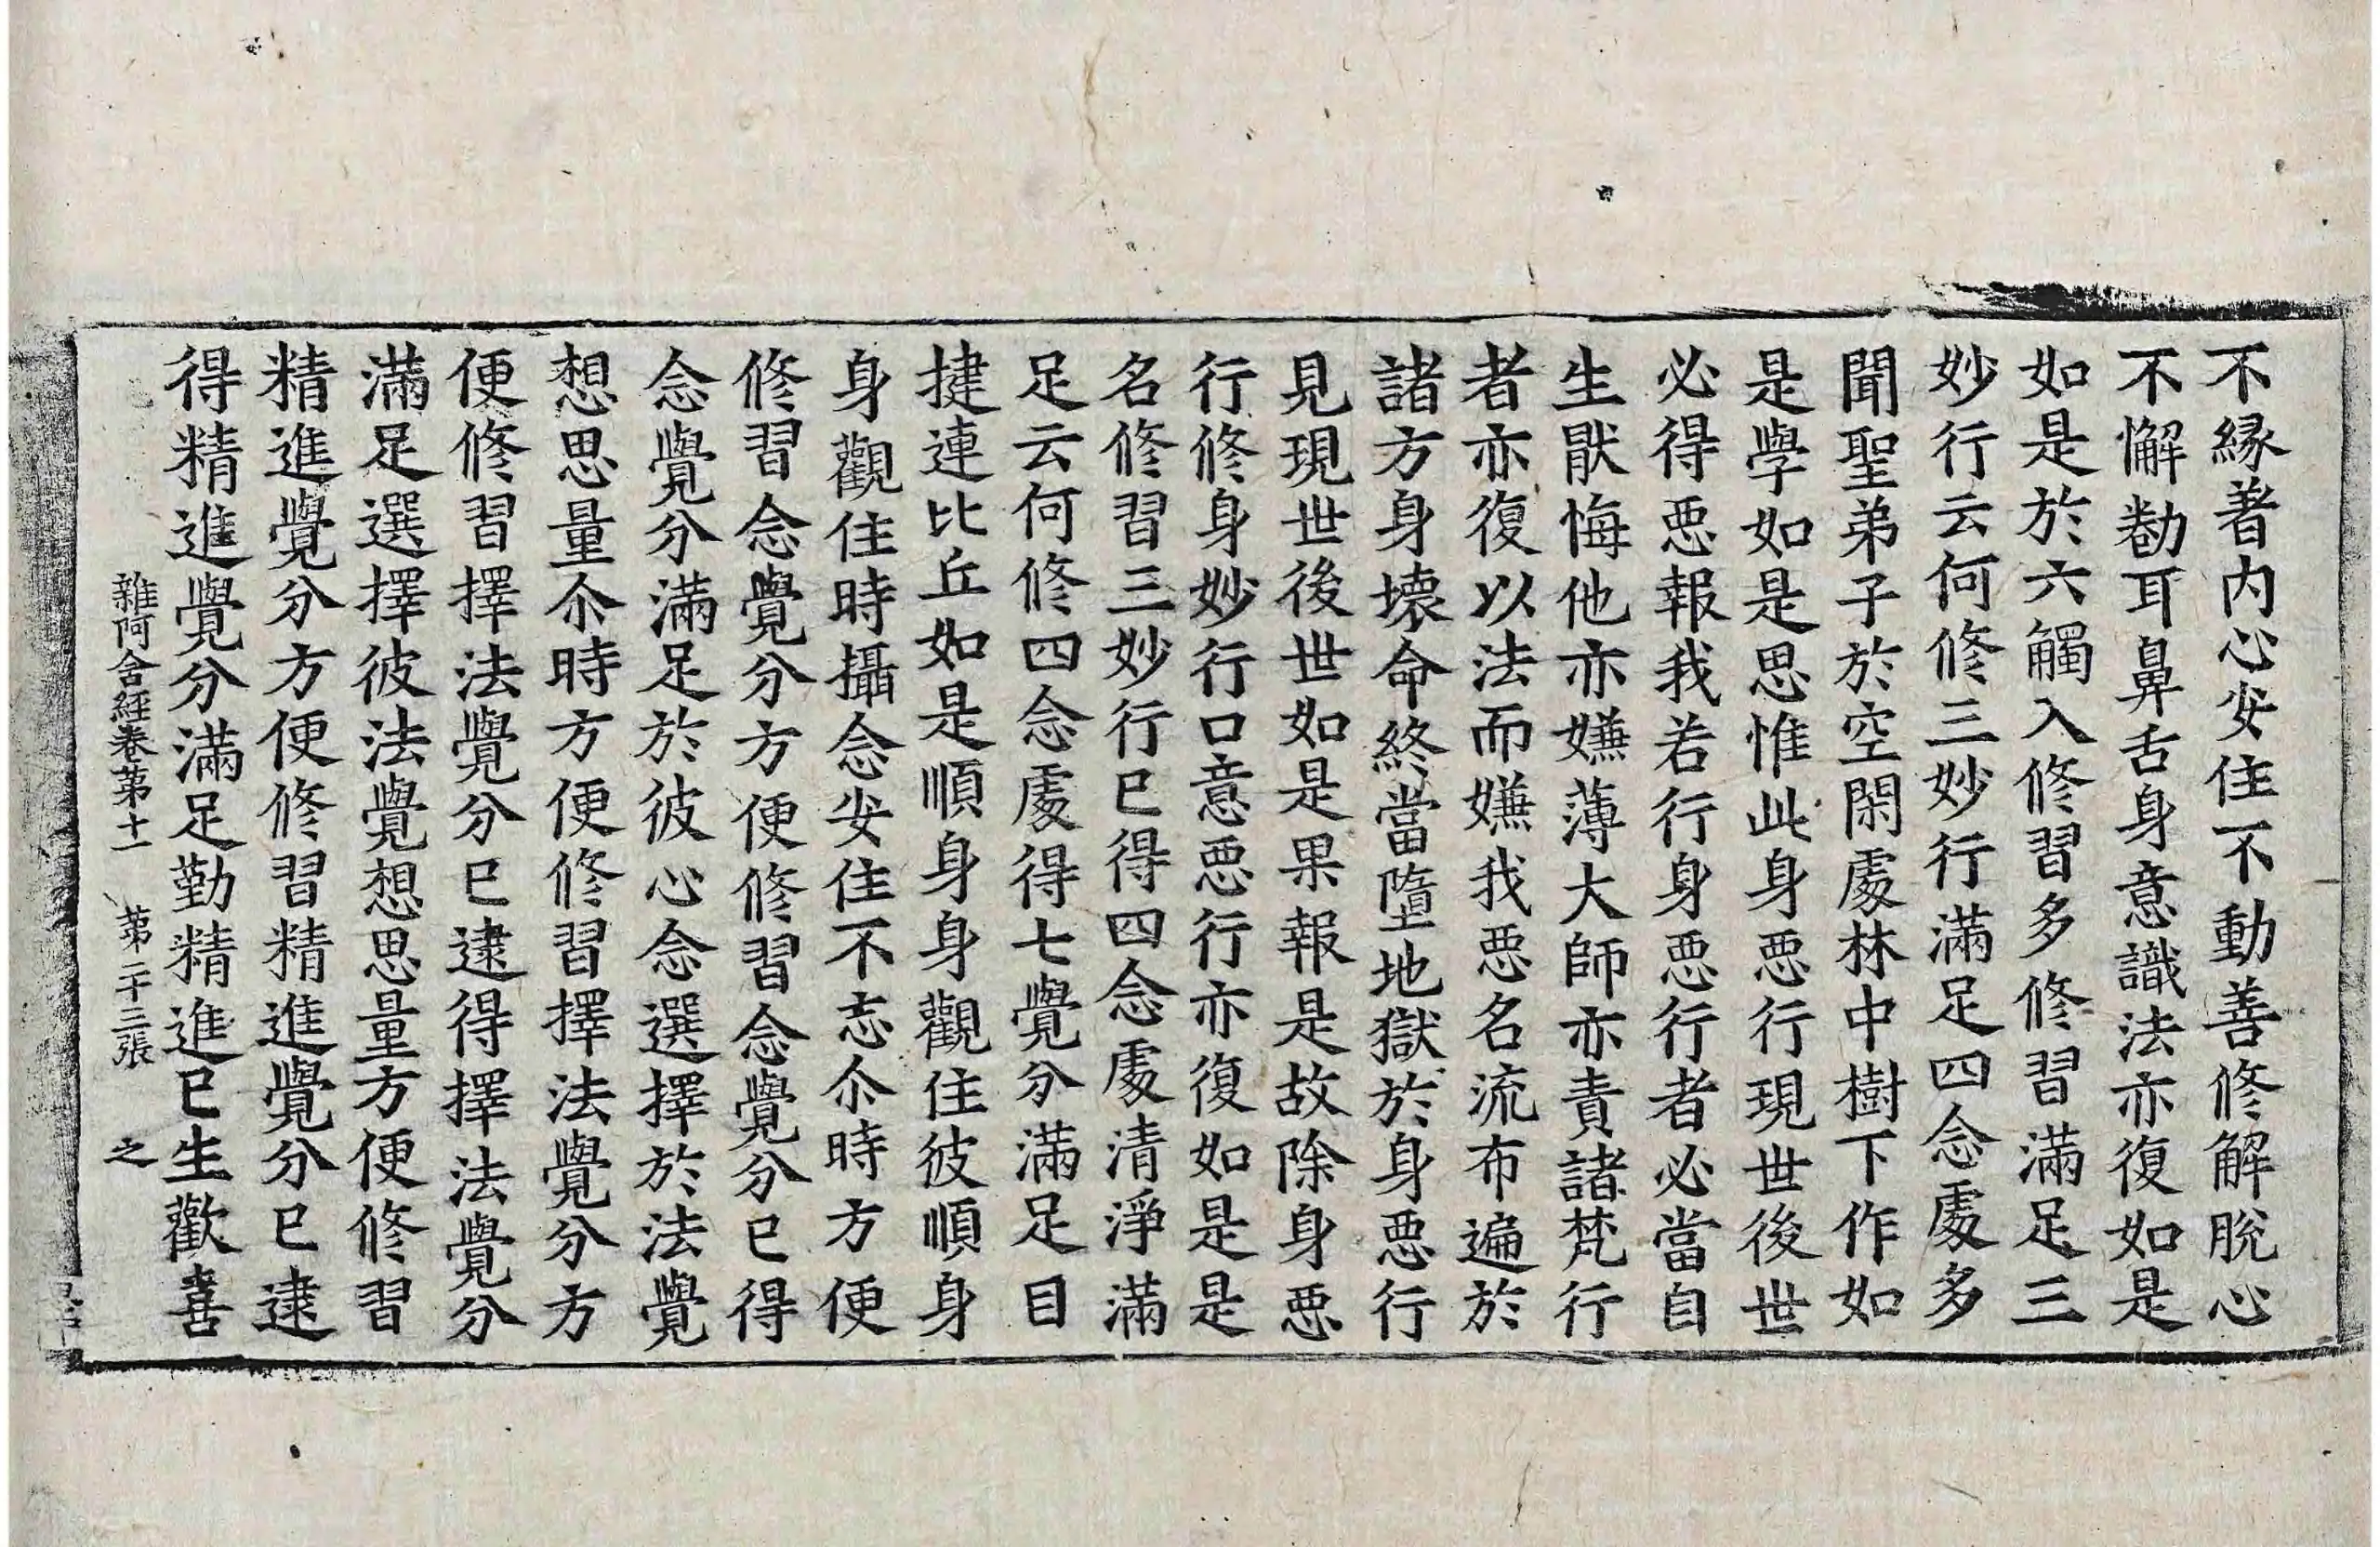 不緣著内心安住不動善修解脫心
不懈勌耳鼻舌身意識法亦復如是
如是於六觸入修習多修習滿足三
妙行云何修三妙行滿足四念處多
聞聖弟子於空閑處林中樹下作如
是學如是思惟此身惡行現世後世
必得惡報我若行身惡行者必當自
生猒悔他亦嫌薄大師亦責諸梵行
者亦復以法而嫌我惡名流布遍於
諸方身壞命終當墮地獄於身惡行
見現世後世如是果報是故除身惡
行修身妙行口意惡行亦復如是是
名修習三妙行已得四念處清淨滿
足云何修四念處得七覺分滿足目
揵連比丘如是順身身觀住彼順身
身觀住時攝念安住不忘尒時方便
修習念覺分方便修習念覺分已得
念覺分滿足於彼心念選擇於法覺
想思量尒時方便修習擇法覺分方
便修習擇法覺分已逮得擇法覺分
滿足選擇彼法覺想思量方便修習
精進覺分方便修習精進覺分已逮
得精進覺分滿足勤精進已生歡喜
雜阿含經卷第十一 第二十三張 之